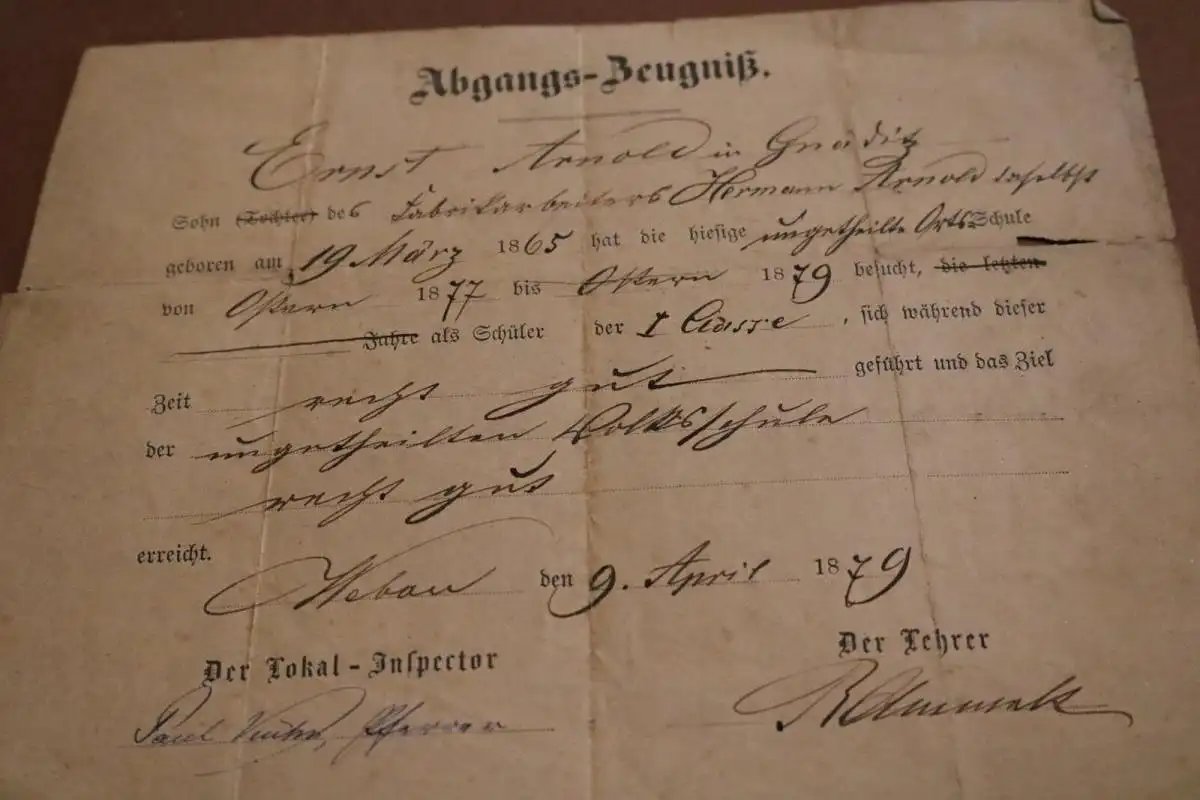 Abgangs-Zeugniß.
Ernst Arnold in Gnäditz
Sohn (Tochter) des Fabrikarbeiters Hermann Arnold daselbst
geboren am 19 März 1865 hat die hiesige ungetheilte Orts Schule
von Ostern 1877 bis Ostern 1879 besucht, die letzten
Jahre als Schüler der I Classe, sich während dieser
Zeit recht gut geführt und das Ziel
der ungetheilten Volksschule
recht gut
erreicht.
Webau den 9. April 1879
Der Lokal-Inspector Der Lehrer
Paul Pfarrer